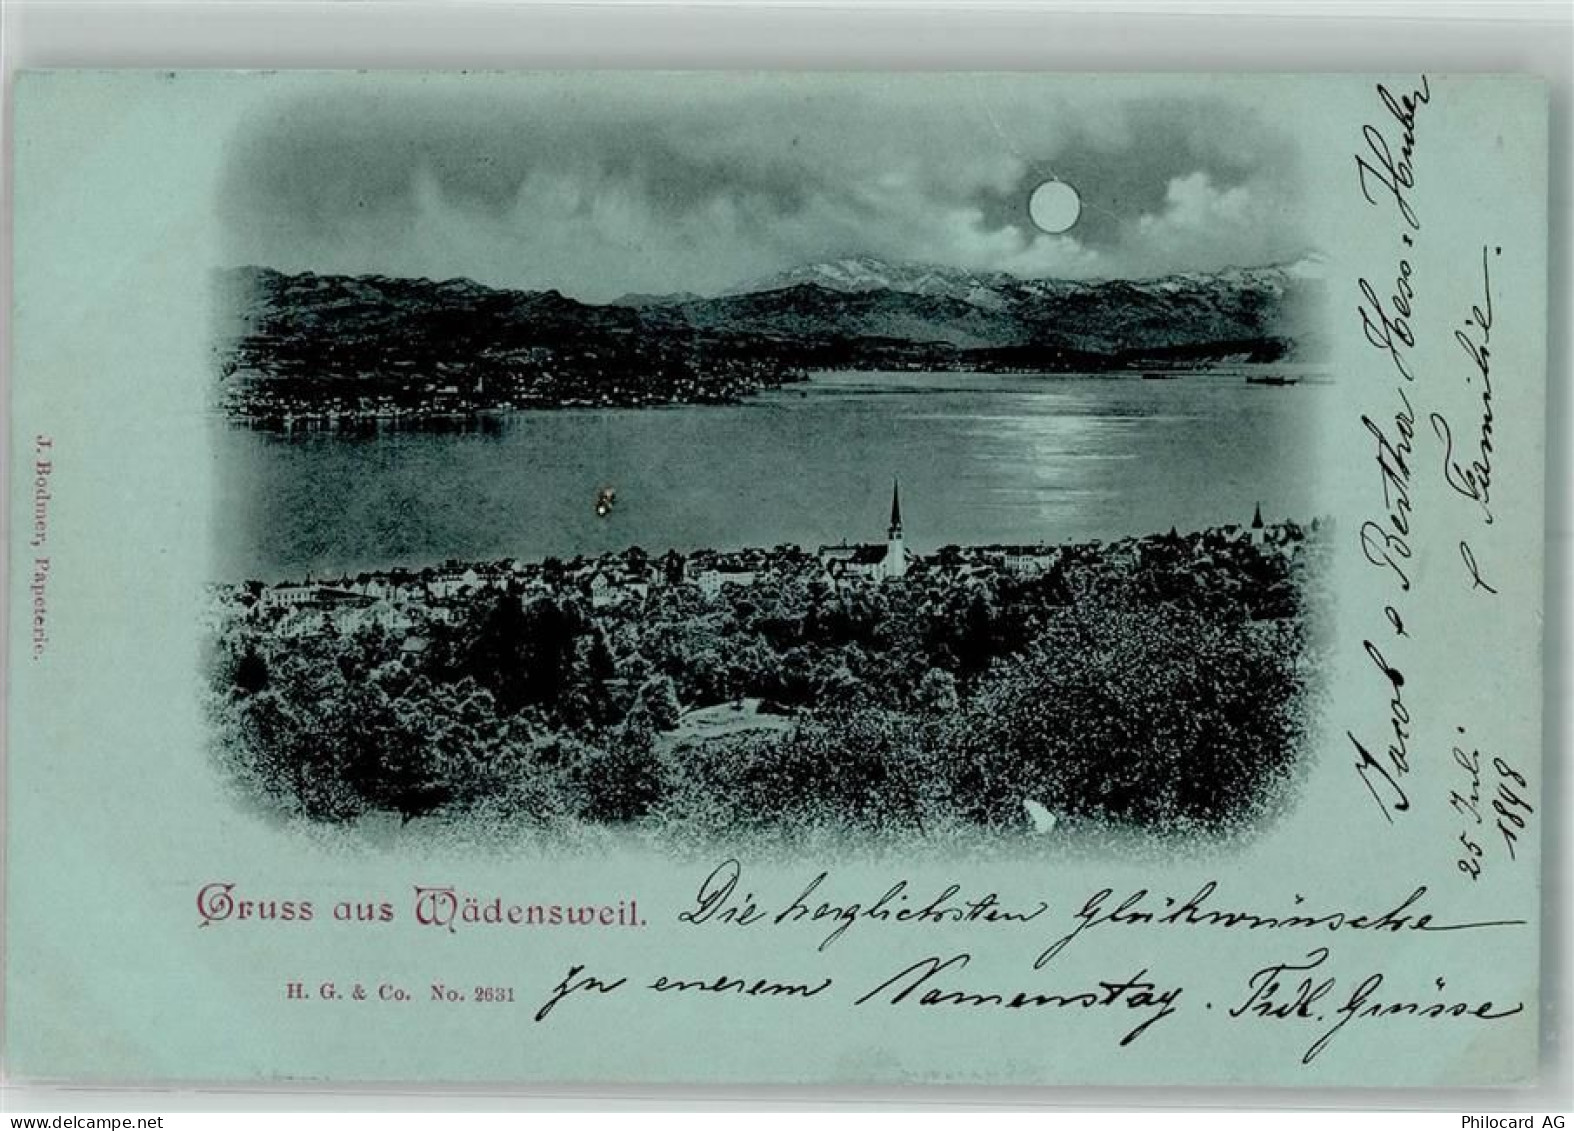 J. Bodmer, Papeterie.
Gruss aus Wädensweil.
H. G. & Co. No. 2631
Die herzlichsten Glückwünsche
zu euerem Namenstag. Frdl. Grüsse
Jacob & Bertha Hess-Huber
& Familie.
25 Juli
1898
delcampe.net
Philocard AG